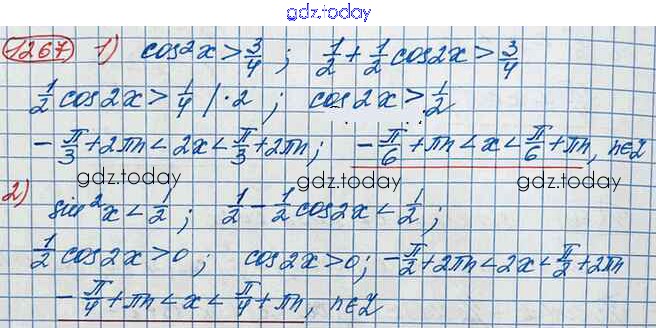 gdz.today
1267 1) cos²x > 3/4 ; 1/2 + 1/2 cos2x > 3/4
1/2 cos2x > 1/4 | · 2 ; cos2x > 1/2
- π/3 + 2πn < 2x < π/3 + 2πn ; - π/6 + πn < x < π/6 + πn, n∈Z
gdz.today gdz.today
2) sin²x < 1/2 ; 1/2 - 1/2 cos2x < 1/2 ;
1/2 cos2x > 0 ; cos2x > 0 ; - π/2 + 2πn < 2x < π/2 + 2πn
gdz.today gdz.today
- π/4 + πn < x < π/4 + πn, n∈Z